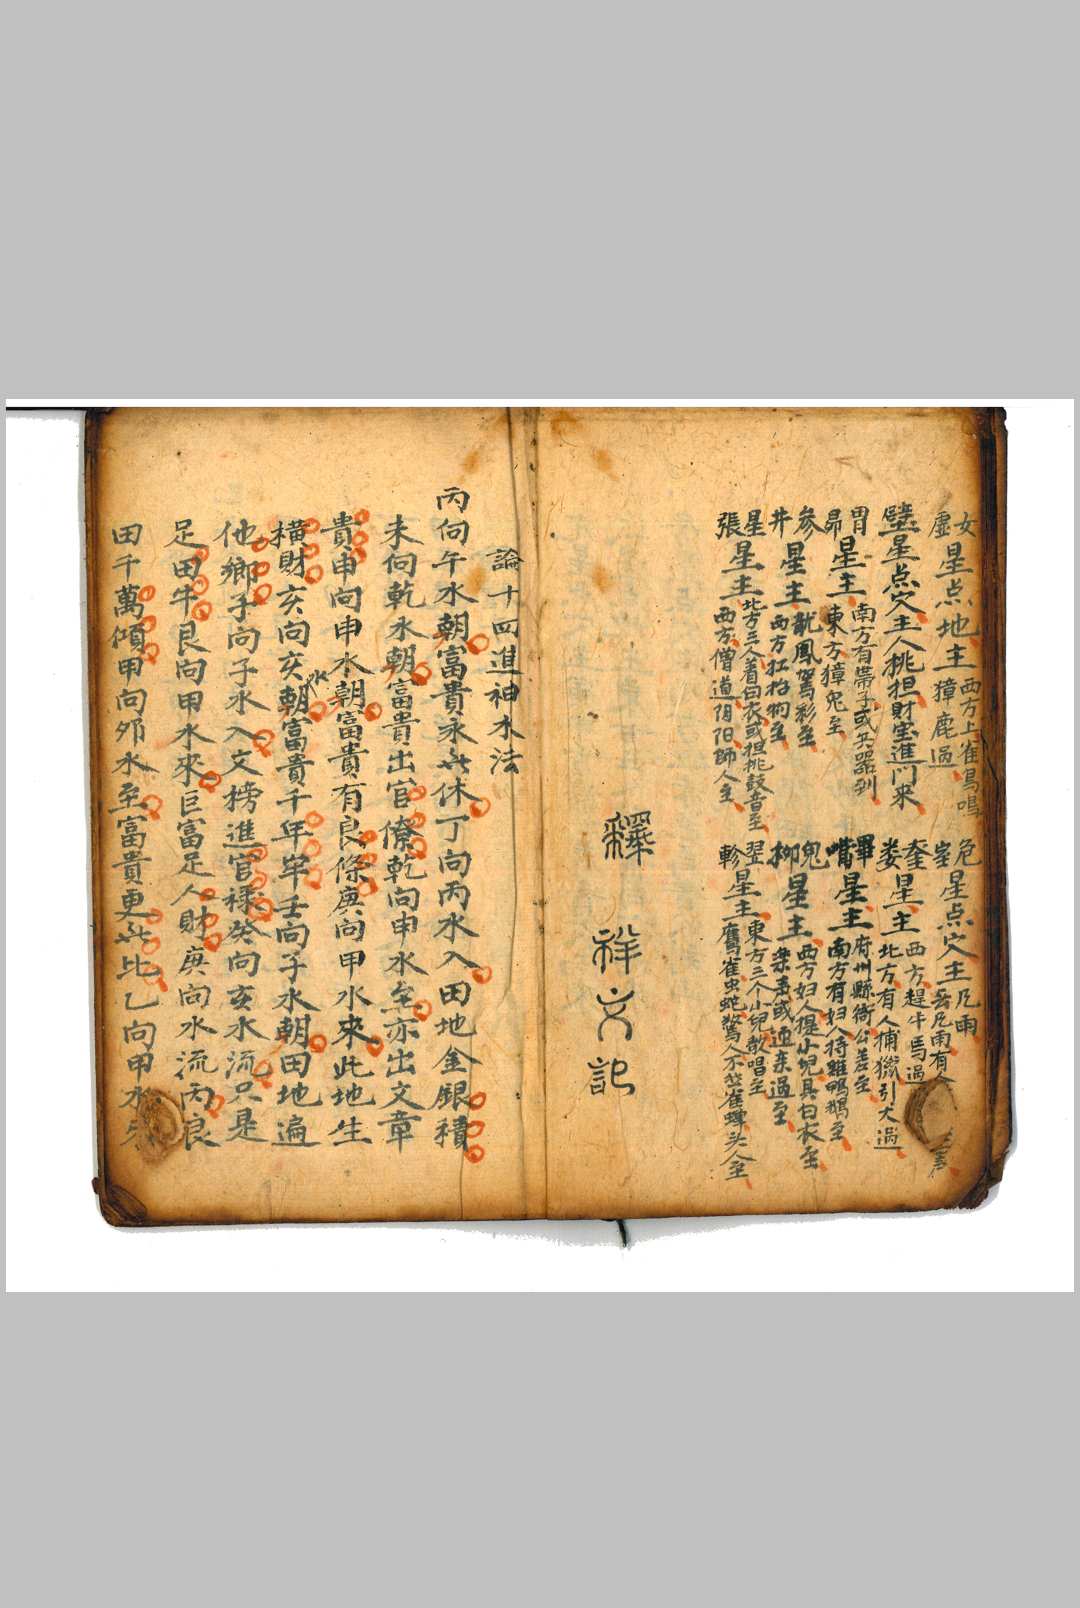 女虛星点地主西方上雀鳥鳴獐鹿過
危室星点穴主凡雨
壁星点穴主人挑担財宝進門来
奎娄星主西方趕牛馬過北方有人捕獵引犬過
胃昴星主南方有帶子或兵器到東方獐鬼至
畢嘴星主府州縣衙公差至南方有妇人将雞鴨鵝至
参井星主龍鳳駕彩至西方狂狗至
鬼柳星主西方妇人提小兒具白衣至
星張星主北方三人着白衣或担挑鼓音至西方僧道阴阳師人至
翌軫星主東方三个小兒歌唱至鷹雀虫蛇驚人不然雀蟬头人至
釋祥文記
論十四進神水法
丙向午水朝富貴永無休丁向丙水入田地金銀積
未向乾水朝富貴出官僚乾向申水至亦出文章
貴申向申水朝富貴有良條庚向甲水來此地生
橫財亥向亥水朝富貴千年牢壬向子水朝田地遍
他鄉子向子水入文榜進官禄癸向亥水流只是
足田牛艮向甲水來巨富足人財庚向水流丙良
田千萬傾甲向夘水至富貴更無比乙向甲水